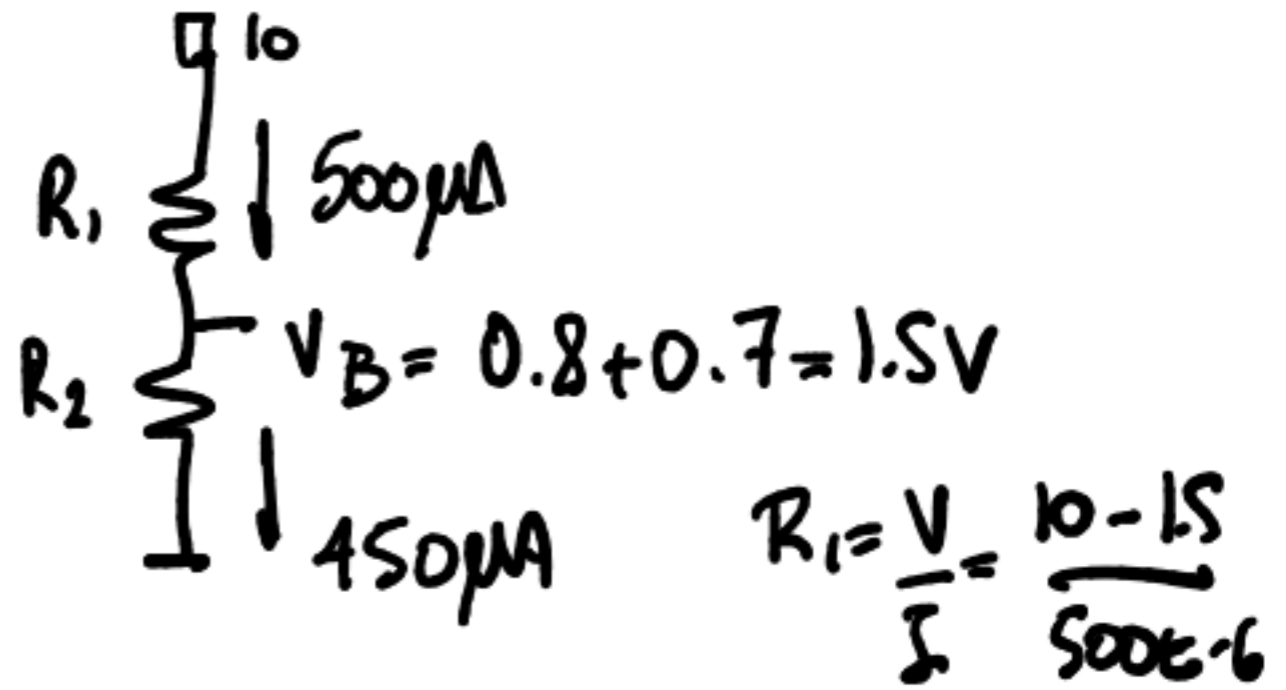 10
R₁ 500μA
V_B = 0.8+0.7=1.5V
R₂
450μA
R₁ = V/I = 10-1.5/500E-6